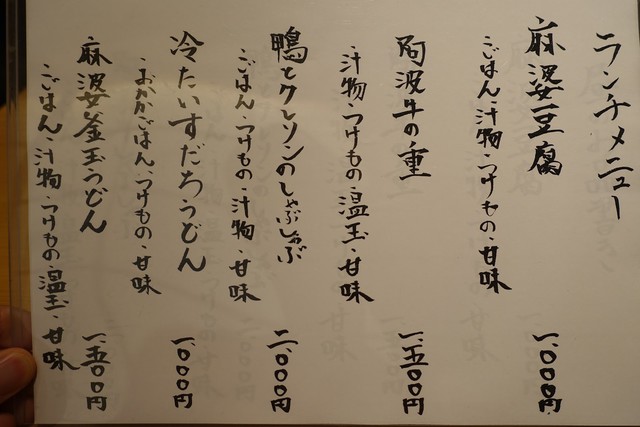 ランチメニュー
麻婆豆腐 一、〇〇〇円
ごはん・汁物・つけもの・甘味
阿波牛の重 一、五〇〇円
汁物・つけもの・温玉・甘味
鴨とクレソンのしゃぶしゃぶ 二、〇〇〇円
ごはん・つけもの・汁物・甘味
冷たいすだちうどん 一、〇〇〇円
おかかごはん、つけもの・甘味
麻婆釜玉うどん 一、五〇〇円
ごはん・汁物・つけもの・温玉・甘味